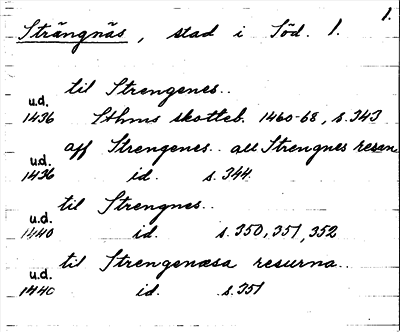 1.
Strängnäs, stad i Söd. 1.
til Strengenes..
u.d.
1436 Sthms skotteb. 1460-68, s. 343
aff Strengenes.. all Strengnes resen
u.d.
1436 id. s. 344
til Strengnes..
u.d.
1440 id. s. 350, 351, 352
til Strengenæsa resurna..
u.d.
1440 id. s. 351